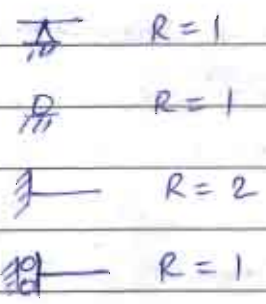 R = 1
R = 1
R = 2
R = 1